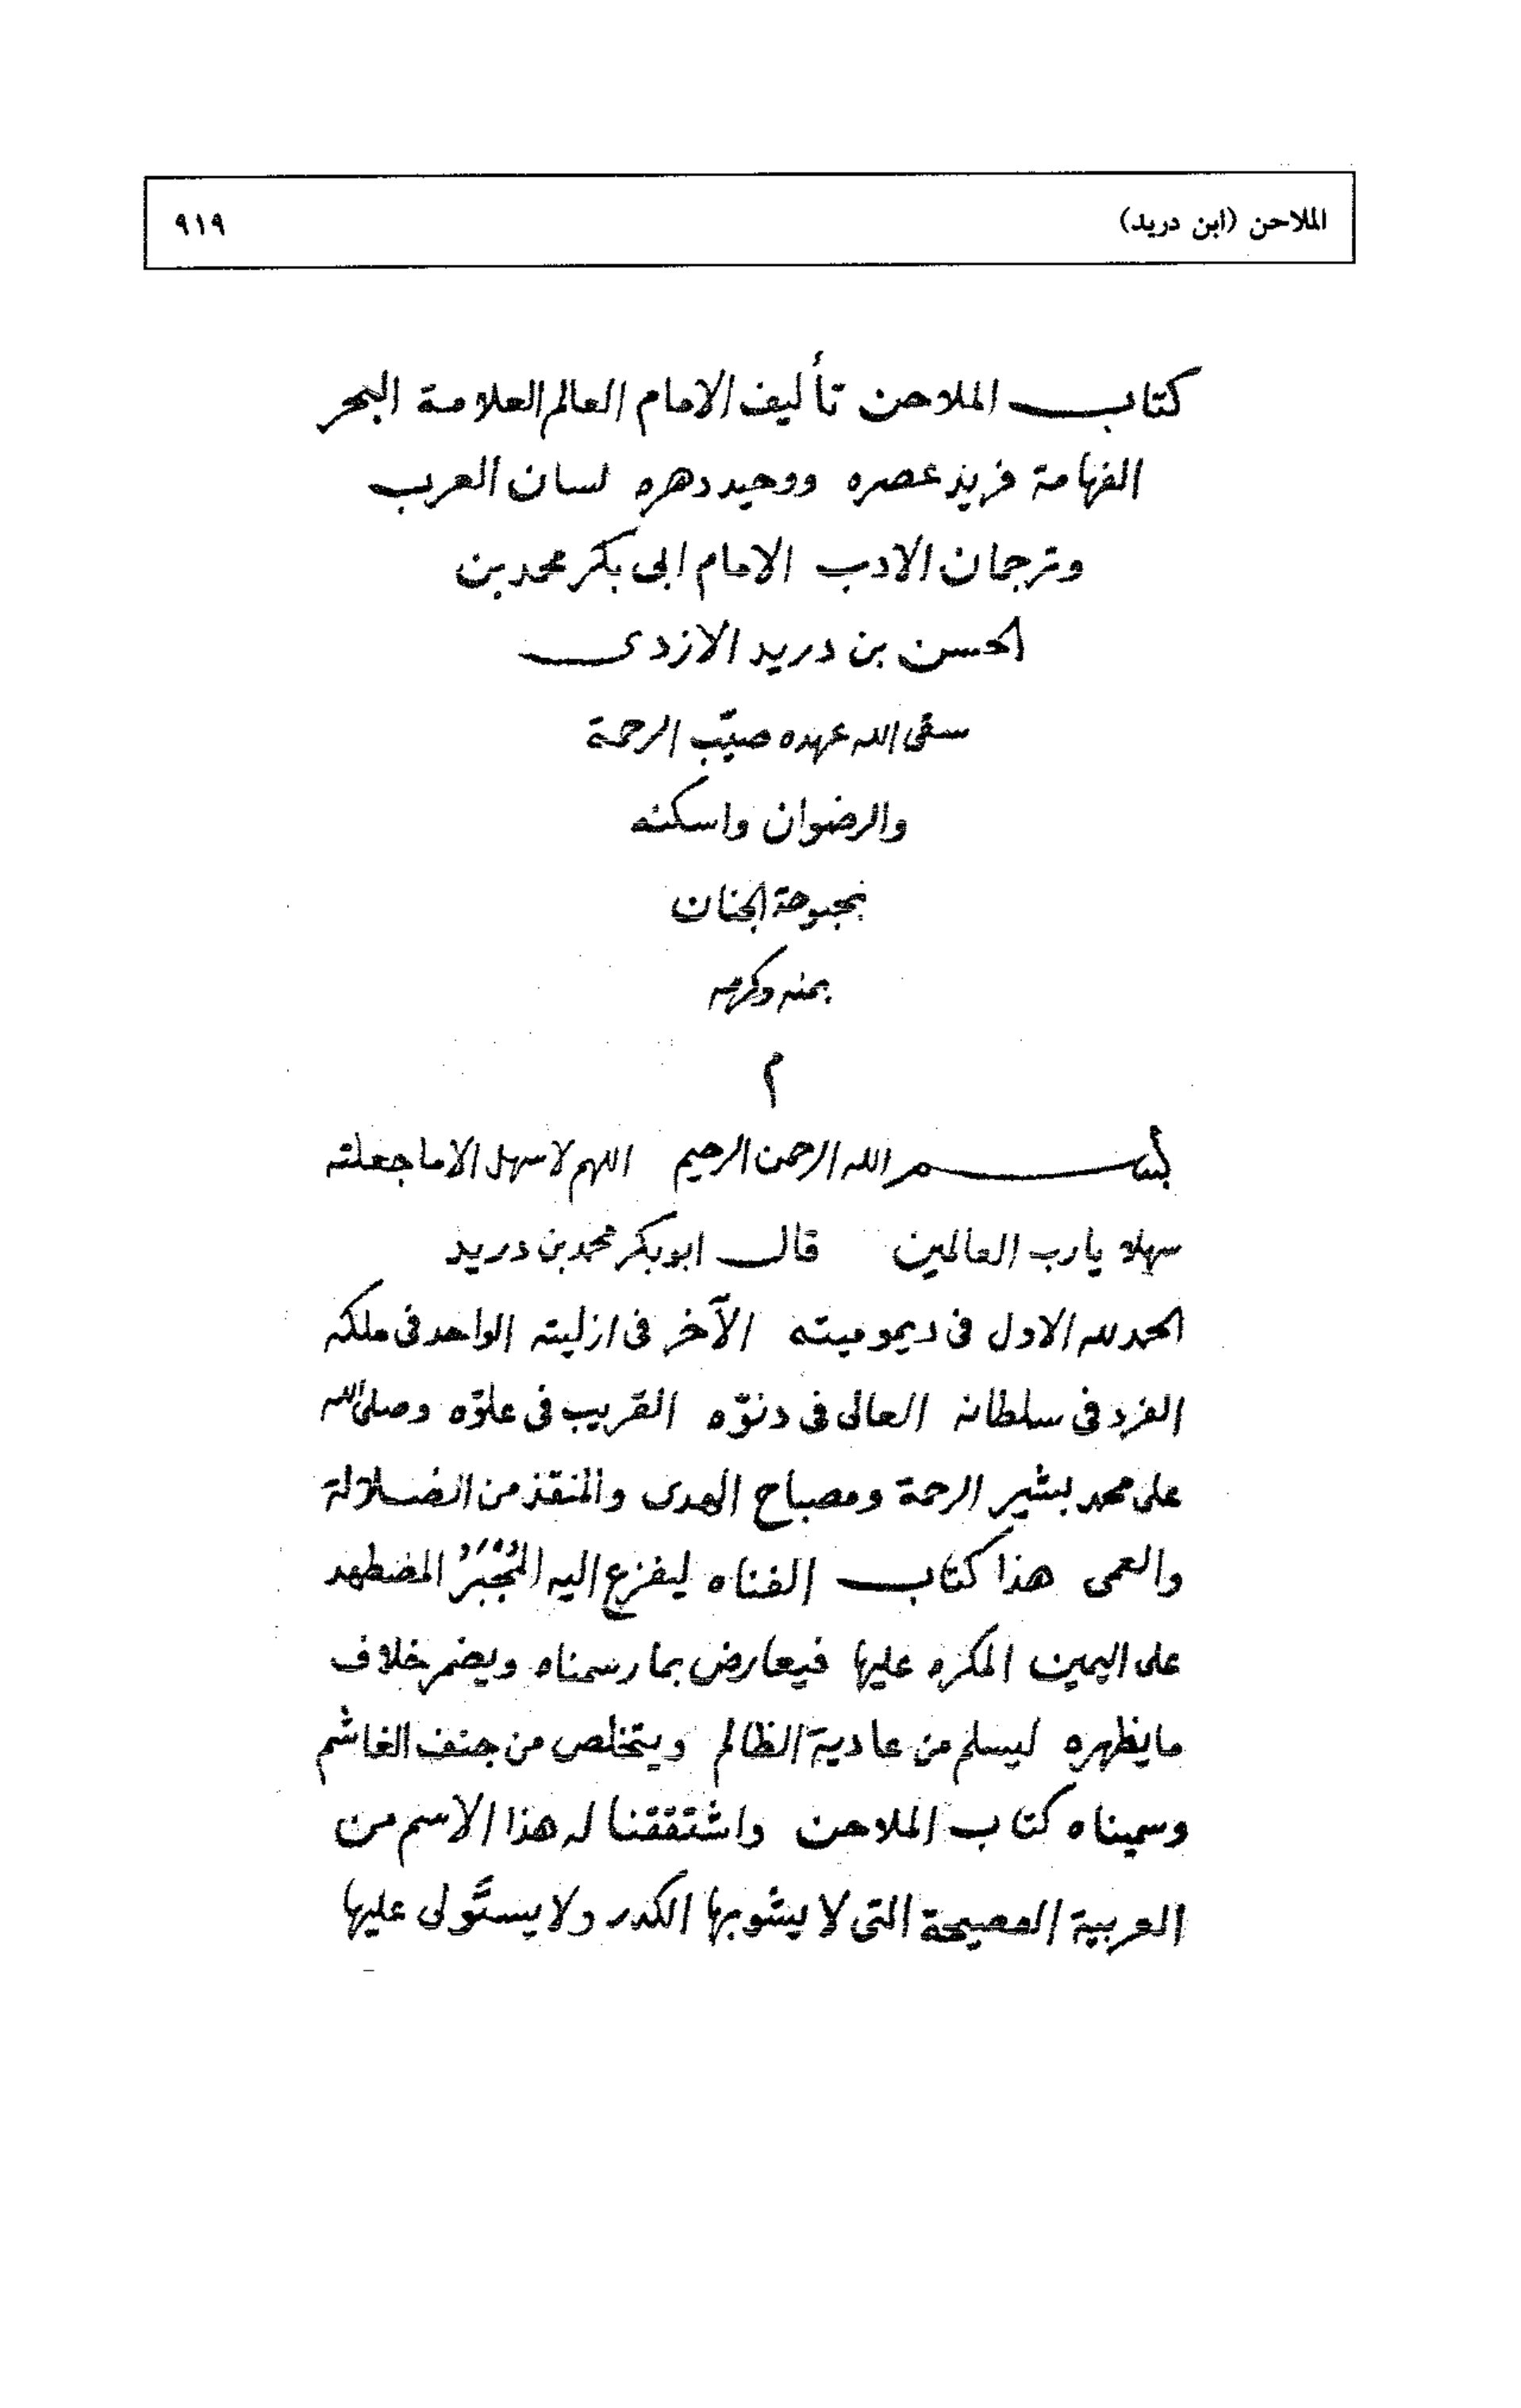 الملاحن (ابن دريد) ٩١٩
كتاب الملاحن تأليف الامام العالم العلامة البحر
الفهامة فريد عصره ووحيد دهره لسان العرب
وترجمان الادب الامام ابى بكر محمد بن
الحسن بن دريد الازدى
سقى الله عهده صيّب الرحمة
والرضوان واسكنه
بحبوحة الجنان
بمنه وكرمه
م
بسم الله الرحمن الرحيم اللهم لا سهل الا ما جعلته
سهلا يا رب العالمين قال ابو بكر محمد بن دريد
الحمد لله الاول فى ديموميته الآخر فى ازليته الواحد فى ملكه
الفرد فى سلطانه العالى فى دنوّه القريب فى علوّه وصلى الله
على محمد بشير الرحمة ومصباح الهدى والمنقذ من الضلالة
والعمى هذا كتاب الفناه ليفزع اليه المُجْبَرُ المضطهد
على اليمين المكره عليها فيعارض بما رسمناه ويضمر خلاف
ما يظهره ليسلم من عادية الظالم ويتخلص من جنف الغاشم
وسميناه كتاب الملاحن واشتققنا له هذا الاسم من
العربية الفصيحة التى لا يشوبها الكدر ولا يستولى عليها